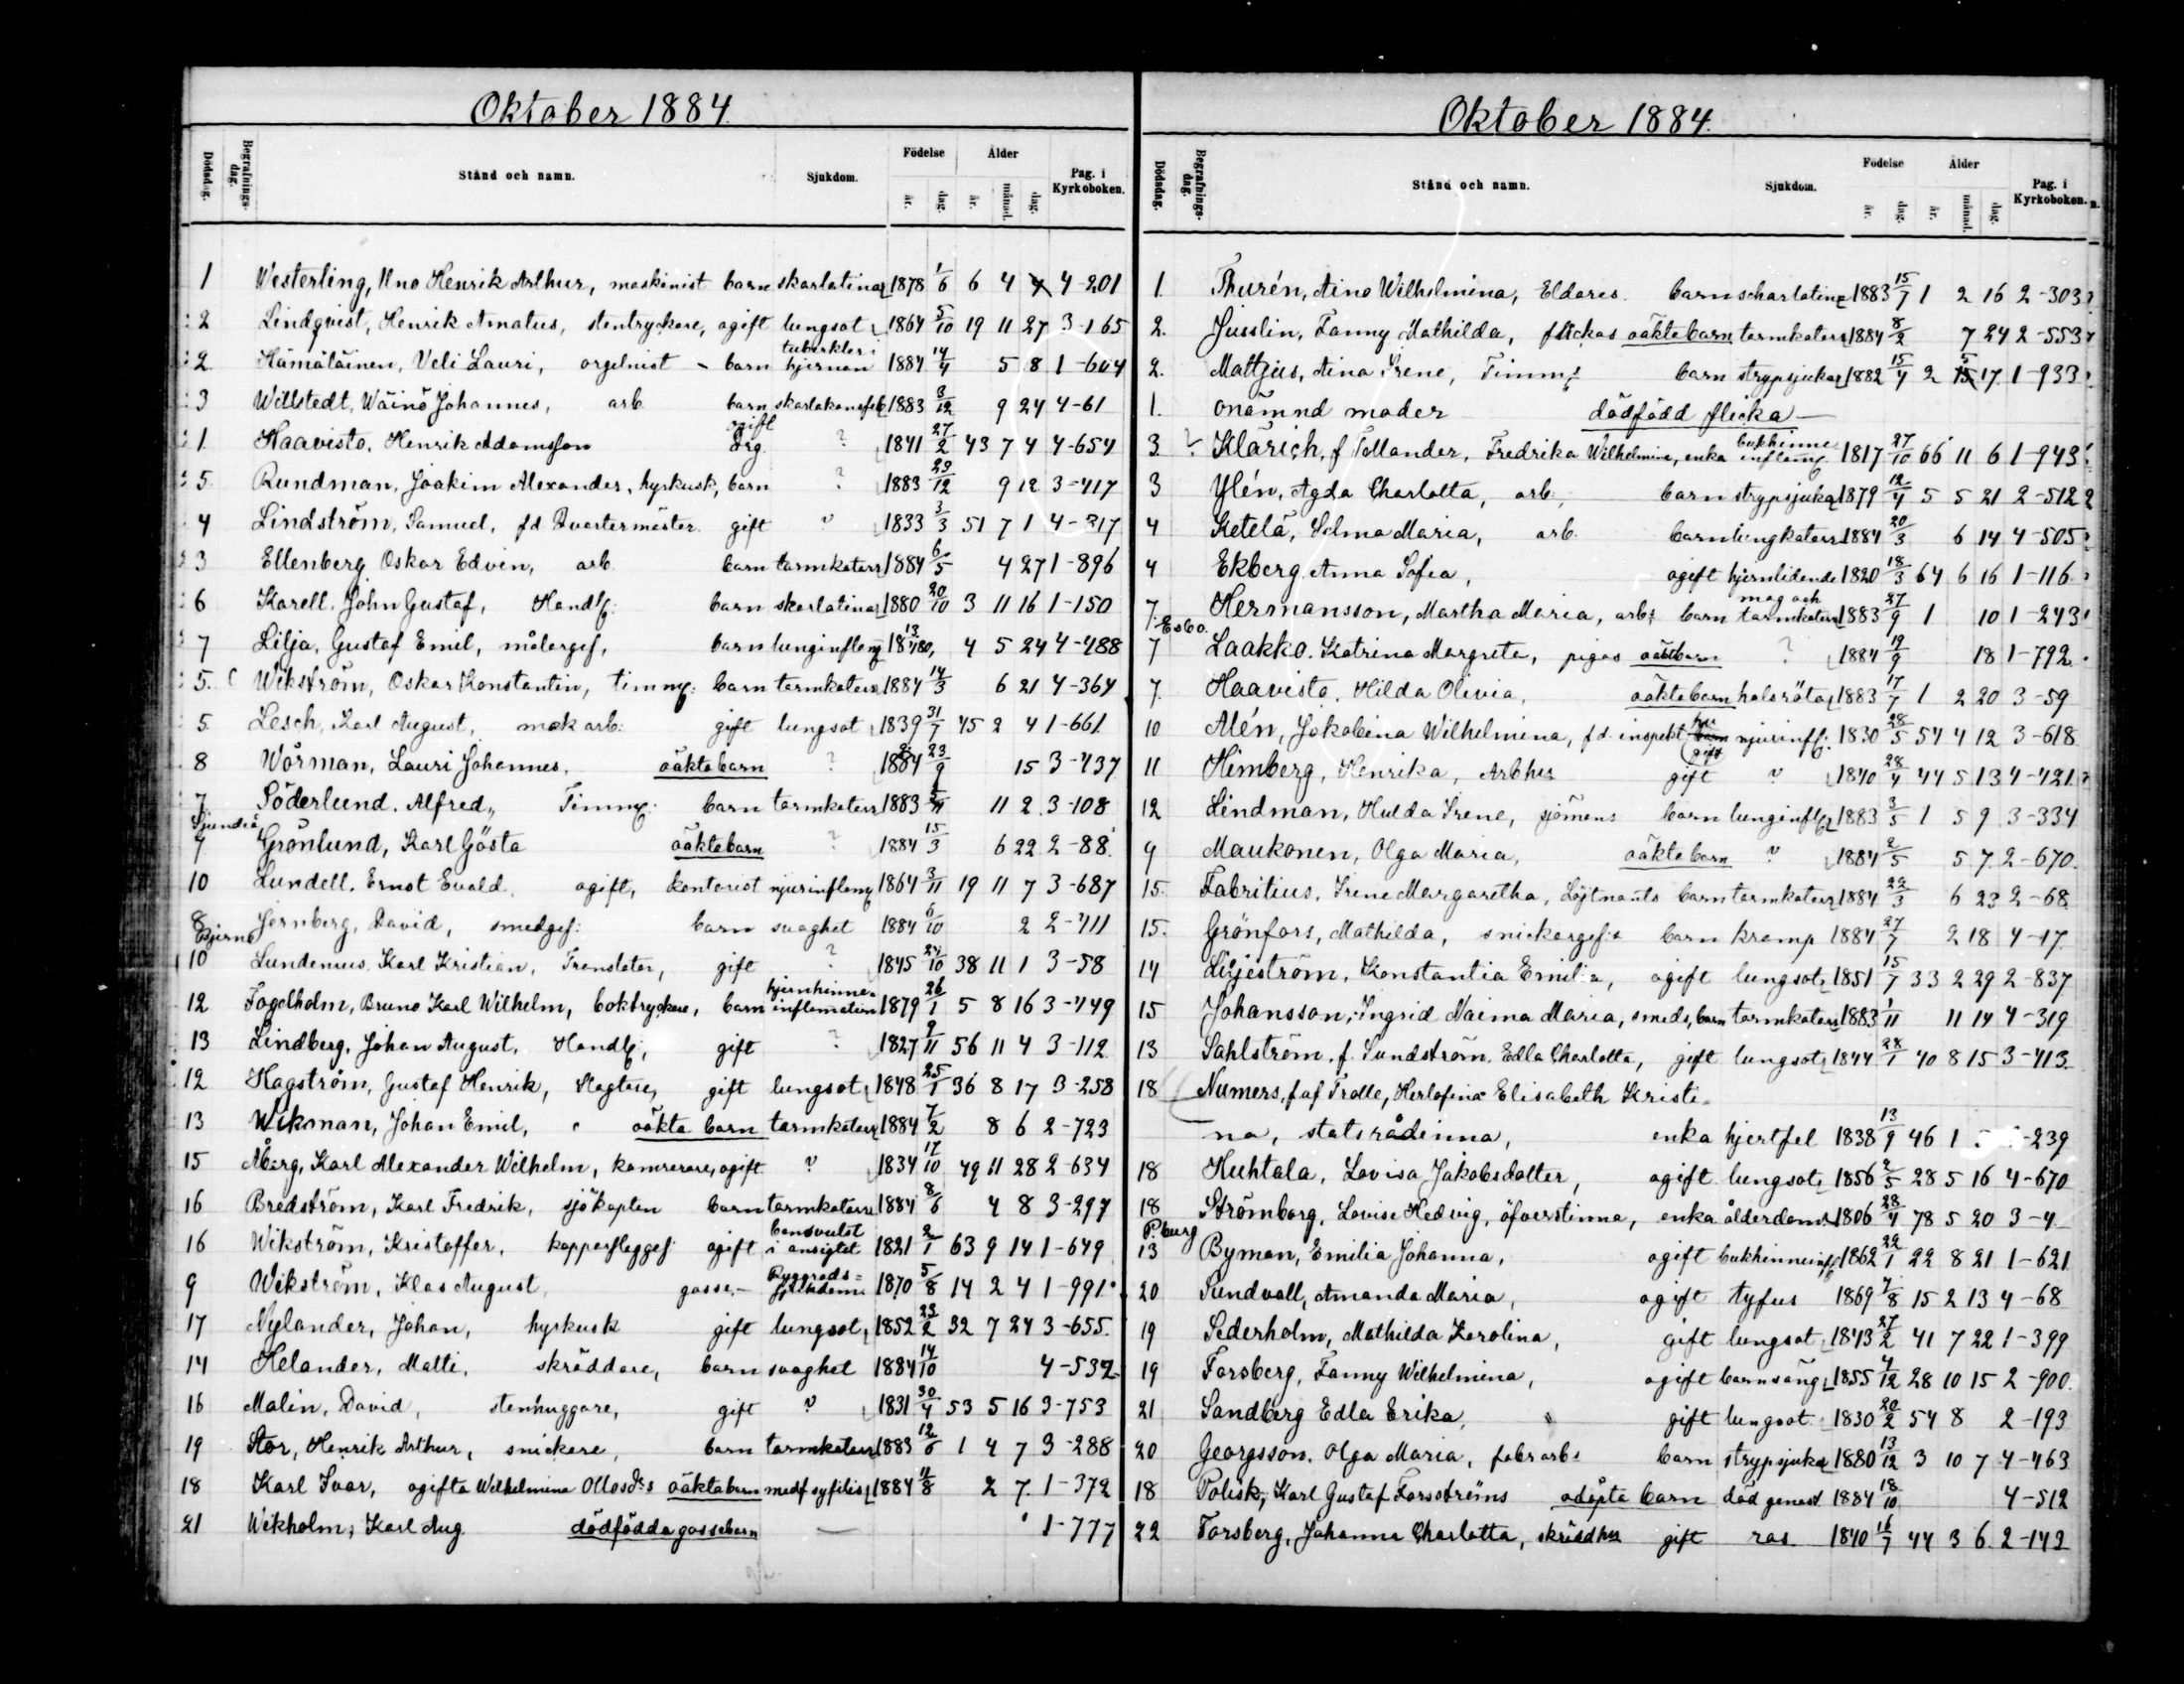 Oktober 1884.
Dödsdag. Begrafnings-dag. Stånd och namn. Sjukdom. Födelse år. dag. Ålder år. månad. dag. Pag. i Kyrkoboken.
1 Westerling, Uno Henrik Arthur, maskinist barn skarlatina 1878 1/6 6 4 4-201
2 Lindqvist, Henrik Amatus, stentryckare, ogift lungsot 1864 5/10 19 11 27 3-165
2 Hämäläinen, Veli Lauri, orgelnist barn tuberkler i hjernan 1884 14/4 5 8 1-604
3 Willstedt, Wäinö Johannes, arb. barn skarlakansfeb 1883 3/12 9 24 4-61
1 Haavisto, Henrik Adamsson ogift drg. ? 1841 27/2 43 7 4 4-654
5 Rundman, Joakim Alexander, hyrkusk, barn ? 1883 23/12 9 12 3-417
4 Lindström, Samuel, fd Qvartermäster gift ? 1833 3/3 51 7 1 4-317
3 Ellenberg Oskar Edvin, arb. barn tarmkatarr 1884 6/5 4 27 1-896
6 Karell, John Gustaf, Handl: barn skarlatina 1880 20/10 3 11 16 1-150
7 Lilja, Gustaf Emil, målargs, barn lunginflamg 1880 13/4 4 5 24 4-488
5. Wikström, Oskar Konstantin, timmg: barn tarmkatarr 1884 14/3 6 21 4-364
5 Lesch, Karl August, mek arb: gift lungsot 1839 31/7 45 2 4 1-661
8 Wörman, Lauri Johannes, oäkta barn ? 1884 23/9 15 3-437
7 Söderlund, Alfred, Timmg: barn tarmkatarr 1883 11 2 3-108
Sjundeå
9 Grönlund, Karl Gösta oäkta barn ? 1884 15/3 6 22 2-88
10 Lundell, Ernst Evald, ogift, kontorist njurinflamg 1864 3/11 19 11 7 3-687
8 Jernberg, David, smedges: barn svaghet 1884 6/10 2 2-411
Bjernå
10 Lundenius Karl Kristian, Translator, gift ? 1845 38 11 1 3-58
12 Fagelholm, Bruno Karl Wilhelm, boktryckare, barn hjernhinne-inflamation 1879 26/1 5 8 16 3-449
13 Lindberg, Johan August, Handl: gift ? 1827 9/11 56 11 4 3-112
12 Hagström, Gustaf Henrik, Slagtare, gift lungsot 1848 25/1 36 8 17 3-258
13 Wikman, Johan Emil, oäkta barn tarmkatarr 1884 7/2 8 6 2-723
15 Åberg, Karl Alexander Wilhelm, kamrerare, ogift ? 1834 17/10 49 11 28 2-634
16 Bredström, Karl Fredrik, sjökapten barn tarmkatarr 1884 8/6 4 8 3-297
16 Wikström, Kristoffer, kopparslgges ogift bensvulst i ansigtet 1821 2/1 63 9 14 1-649
9 Wikström, Klas August, gosse Ryggrads= sjukdom 1870 5/8 14 2 4 1-991
17 Nylander, Johan, hyrkusk gift lungsot, 1852 23/2 32 7 24 3-655
14 Helander, Matti, skräddare, barn svaghet 1884 14/10 4-532
16 Malin, David, stenhuggare, gift ? 1831 30/4 53 5 16 3-753
19 Stor, Henrik Arthur, snickare, barn tarmkatarr 1883 12/6 1 4 7 3-288
18 Karl Ivar, ogifta Wilhelmina Ollasdrs oäkta barn medf syfilis 1884 11/8 2 7 1-372
21 Wikholm, Karl Aug. dödfödda gossebarn — 1-777
Oktober 1884.
Dödsdag. Begrafnings-dag. Stånd och namn. Sjukdom. Födelse år. dag. Ålder år. månad. dag. Pag. i Kyrkoboken.
1. Thurén, Aino Wilhelmina, Eldares barn scharlatina 1883 15/7 1 2 16 2-303
2. Jusslin, Fanny Mathilda, flickas oäkta barn tarmkatarr 1884 8/2 7 24 2-553
2. Mattjus, Aina Irene, Timms barn strypsjuka 1882 15/4 2 5 17 1-933
1. onämnd moder dödfödd flicka —
3 Klärich, f Tollander, Fredrika Wilhelmina, enka bukhinne inflamg. 1817 27/10 66 11 6 1-943
3 Ylén, Agda Charlotta, arb. barn strypsjuka 1879 12/4 5 5 21 2-512
4 Ketelä, Selma Maria, arb. barn lungkatarr 1884 20/3 6 14 4-505
4 Ekberg Anna Sofia, ogift hjernlidande 1820 18/3 64 6 16 1-116
7. Hermansson, Martha Maria, arbs barn mag och tarmkatarr 1883 27/9 1 10 1-243
Esbo.
7 Laakko, Katrina Margreta, pigas oäkta barn ? 1884 19/9 18 1-792
7. Haavisto, Hilda Olivia, oäkta barn halsröta 1883 17/7 1 2 20 3-59
10 Alén, Jakobina Wilhelmina, f d. inspekt hu gift njurinfl: 1830 28/5 54 4 12 3-618
11 Himberg, Henrika, Arbhu gift ? 1840 28/4 44 5 13 4-421
12 Lindman, Hulda Irene, sjömans barn lunginflg 1883 3/5 1 5 9 3-334
9 Maukonen, Olga Maria, oäkta barn ? 1884 2/5 5 7 2-670
15. Fabritius, Irene Margaretha, Löjtnants barn tarmkatarr 1884 22/3 6 23 2-68
15. Grönfors, Mathilda, snickargess barn kramp 1884 27/7 2 18 4-17
14 Liljeström, Konstantia Emilia, ogift lungsot 1851 15/7 33 2 29 2-837
15 Johansson, Ingrid Naima Maria, smeds, barn tarmkatarr 1883 1/11 11 14 4-319
13 Sahlström, f. Sundström, Edla Charlotta, gift lungsot 1844 28/1 40 8 15 3-413
18 Numers, f af Trolle, Herlofina Elisabeth Kristi=
na, statsrådinna, enka hjertfel 1838 13/9 46 1 -239
18 Huhtala, Lovisa Jakobsdotter, ogift lungsot 1856 2/5 28 5 16 4-670
18 Strömborg, Lovisa Hedvig, öfverstinna, enka ålderdoms 1806 28/4 78 5 20 3-4
P. burg
13 Byman, Emilia Johanna, ogift bukhinneinfl 1862 22/1 22 8 21 1-621
20 Sundvall, Amanda Maria, ogift tyfus 1869 7/8 15 2 13 4-68
19 Sederholm, Mathilda Karolina, gift lungsot 1843 27/2 41 7 22 1-399
19 Forsberg, Fanny Wilhelmina, ogift barnsäng 1855 4/12 28 10 15 2-900
21 Sandberg Edla Erika, gift lungsot 1830 20/2 54 8 2-193
20 Georgsson, Olga Maria, fabrarbs barn strypsjuka 1880 13/12 3 10 7 4-463
18 Polisk, Karl Gustaf Forsströms odöpta barn död genast 1884 18/10 4-512
22 Forsberg, Johanna Charlotta, skrädhu gift ros 1840 16/7 44 3 6 2-142